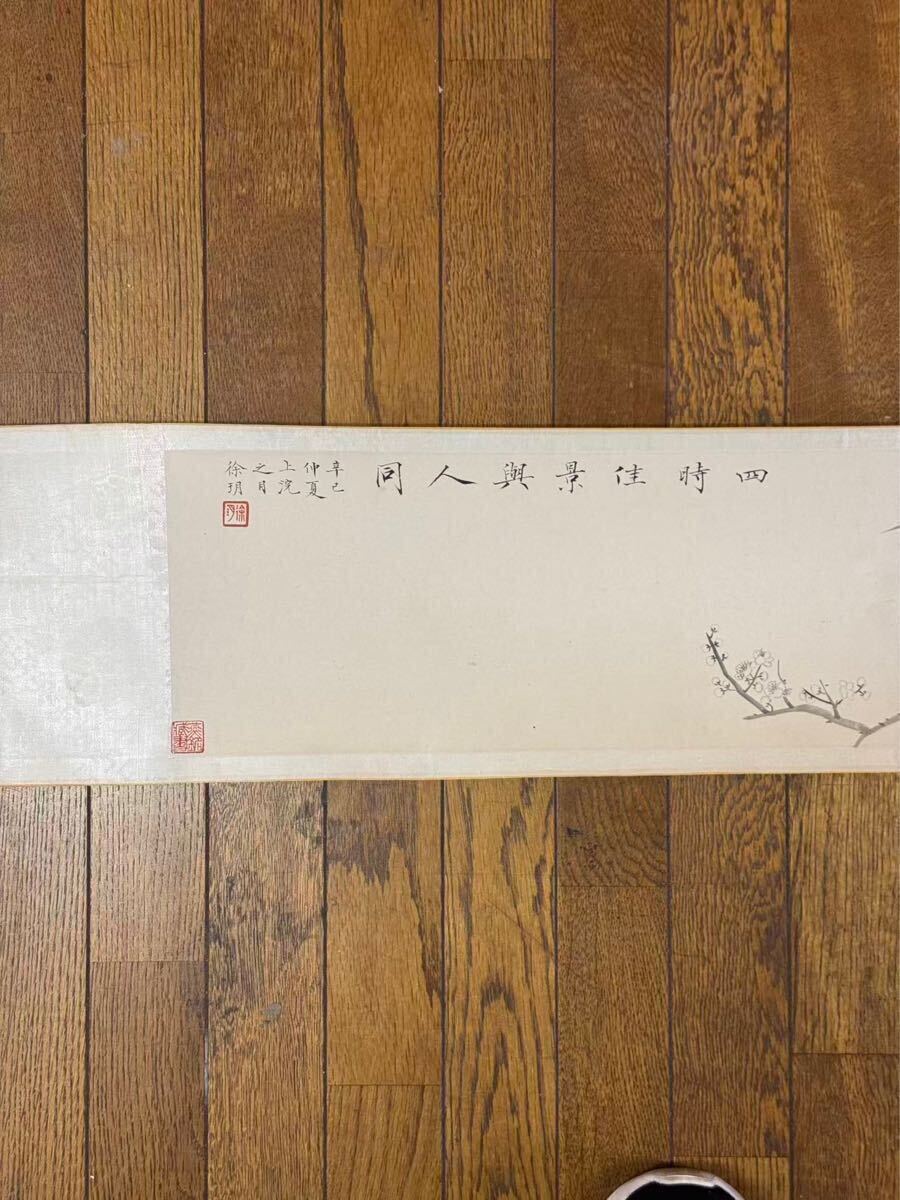 四時佳景與人同
辛巳
仲夏
上浣
之月
徐玥